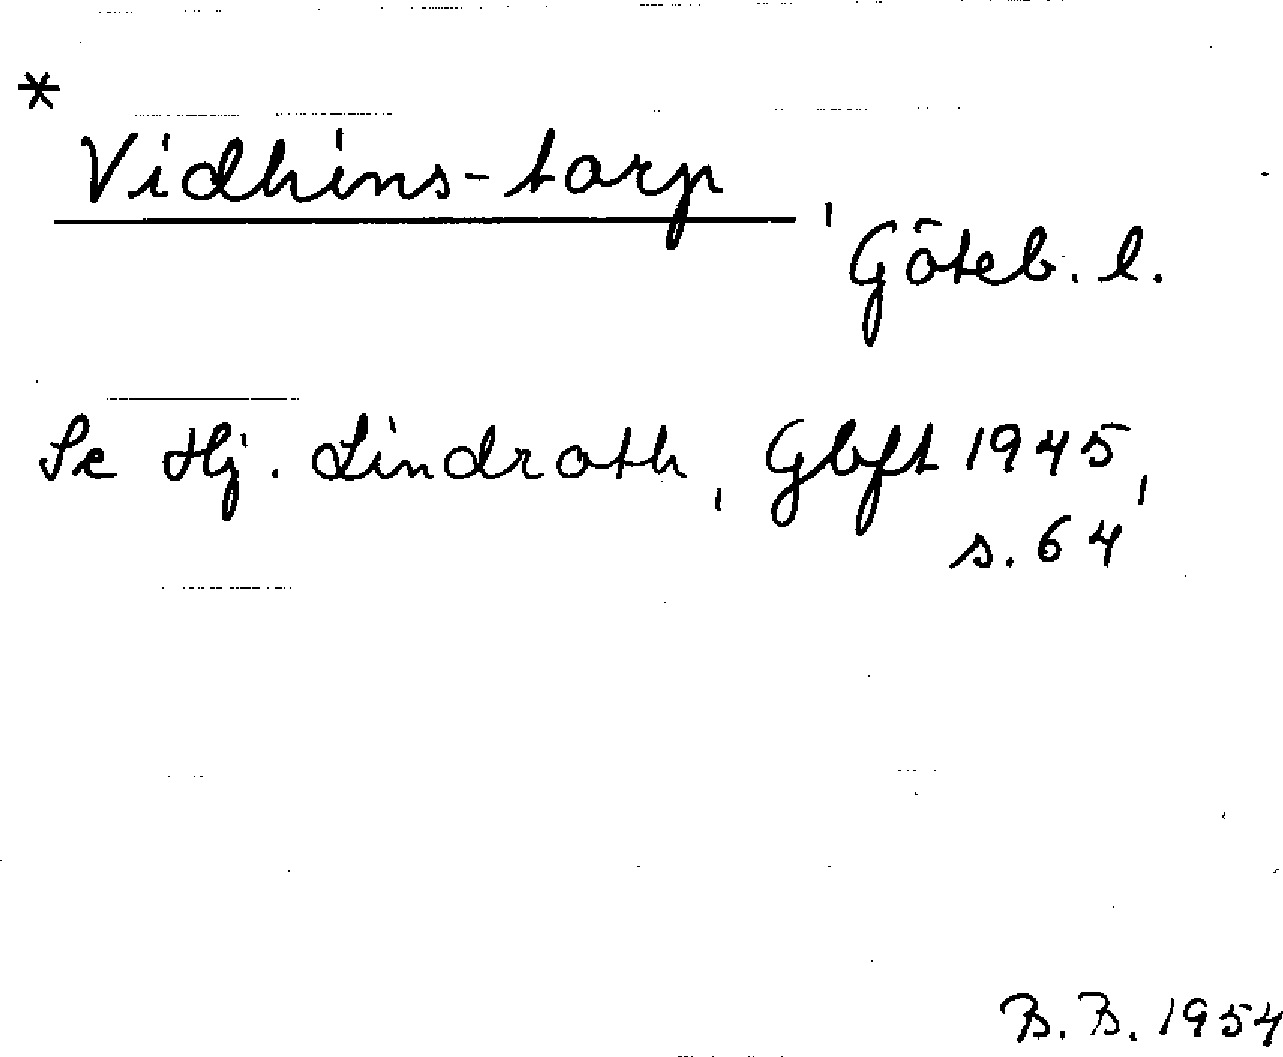 *
Vidhins-torp,
Göteb. l.
Se Hj. Lindroth, Gbft 1945,
s. 64
B. B. 1954